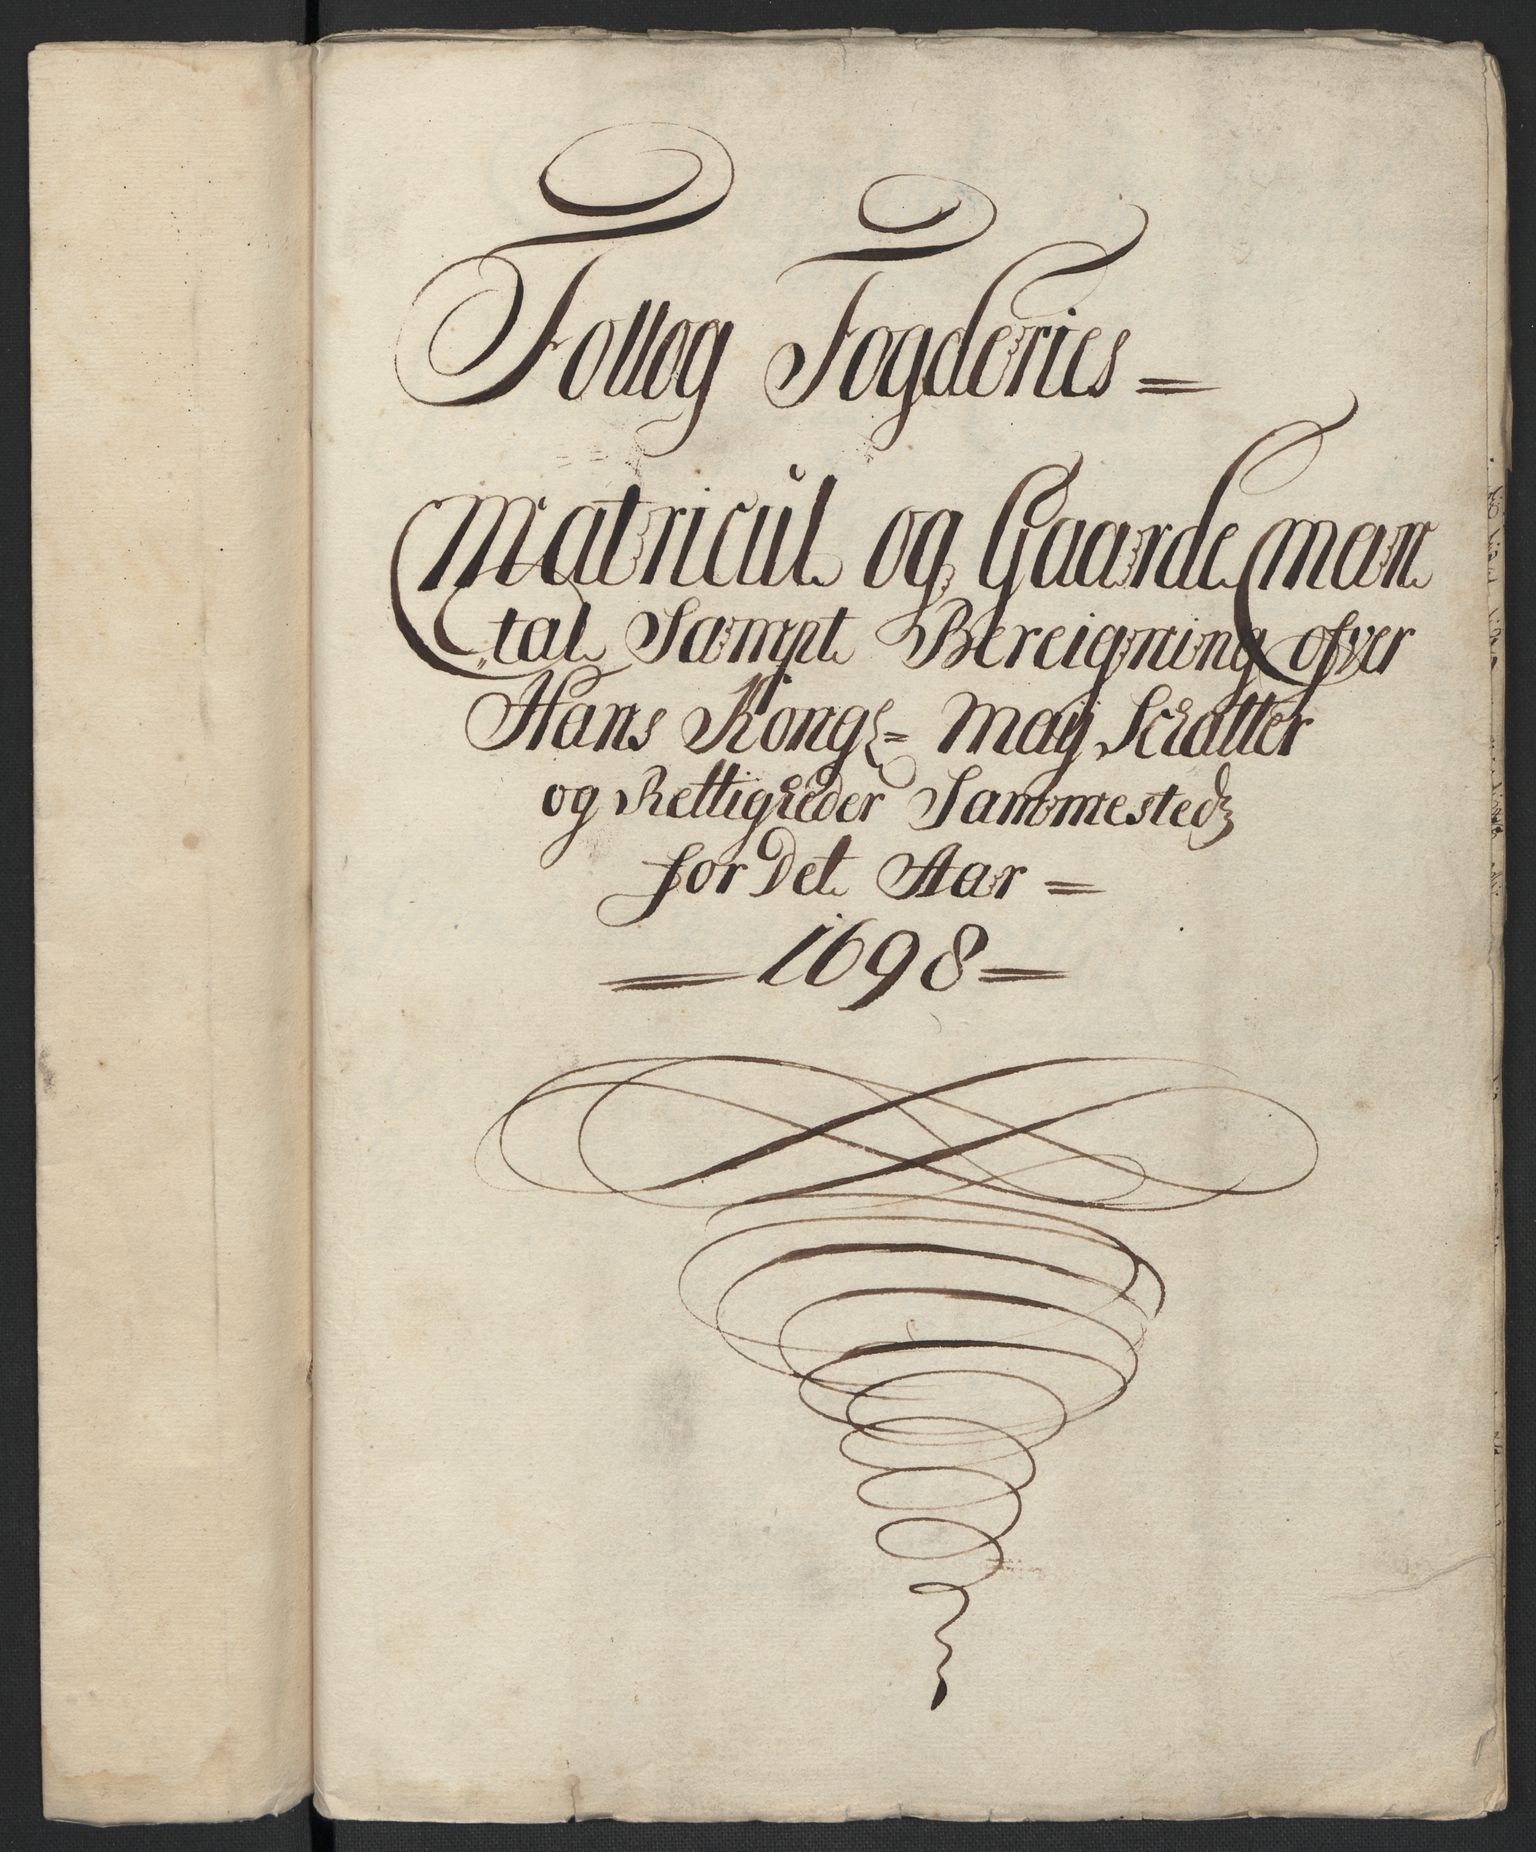 Follog Fogderies =
Matricül og Gaarde man
tal Sampt Bereigning ofver
Hans Kongl= May Schatter
og Rettigheder Sammestedz
for Det Aar =
= 1698 =